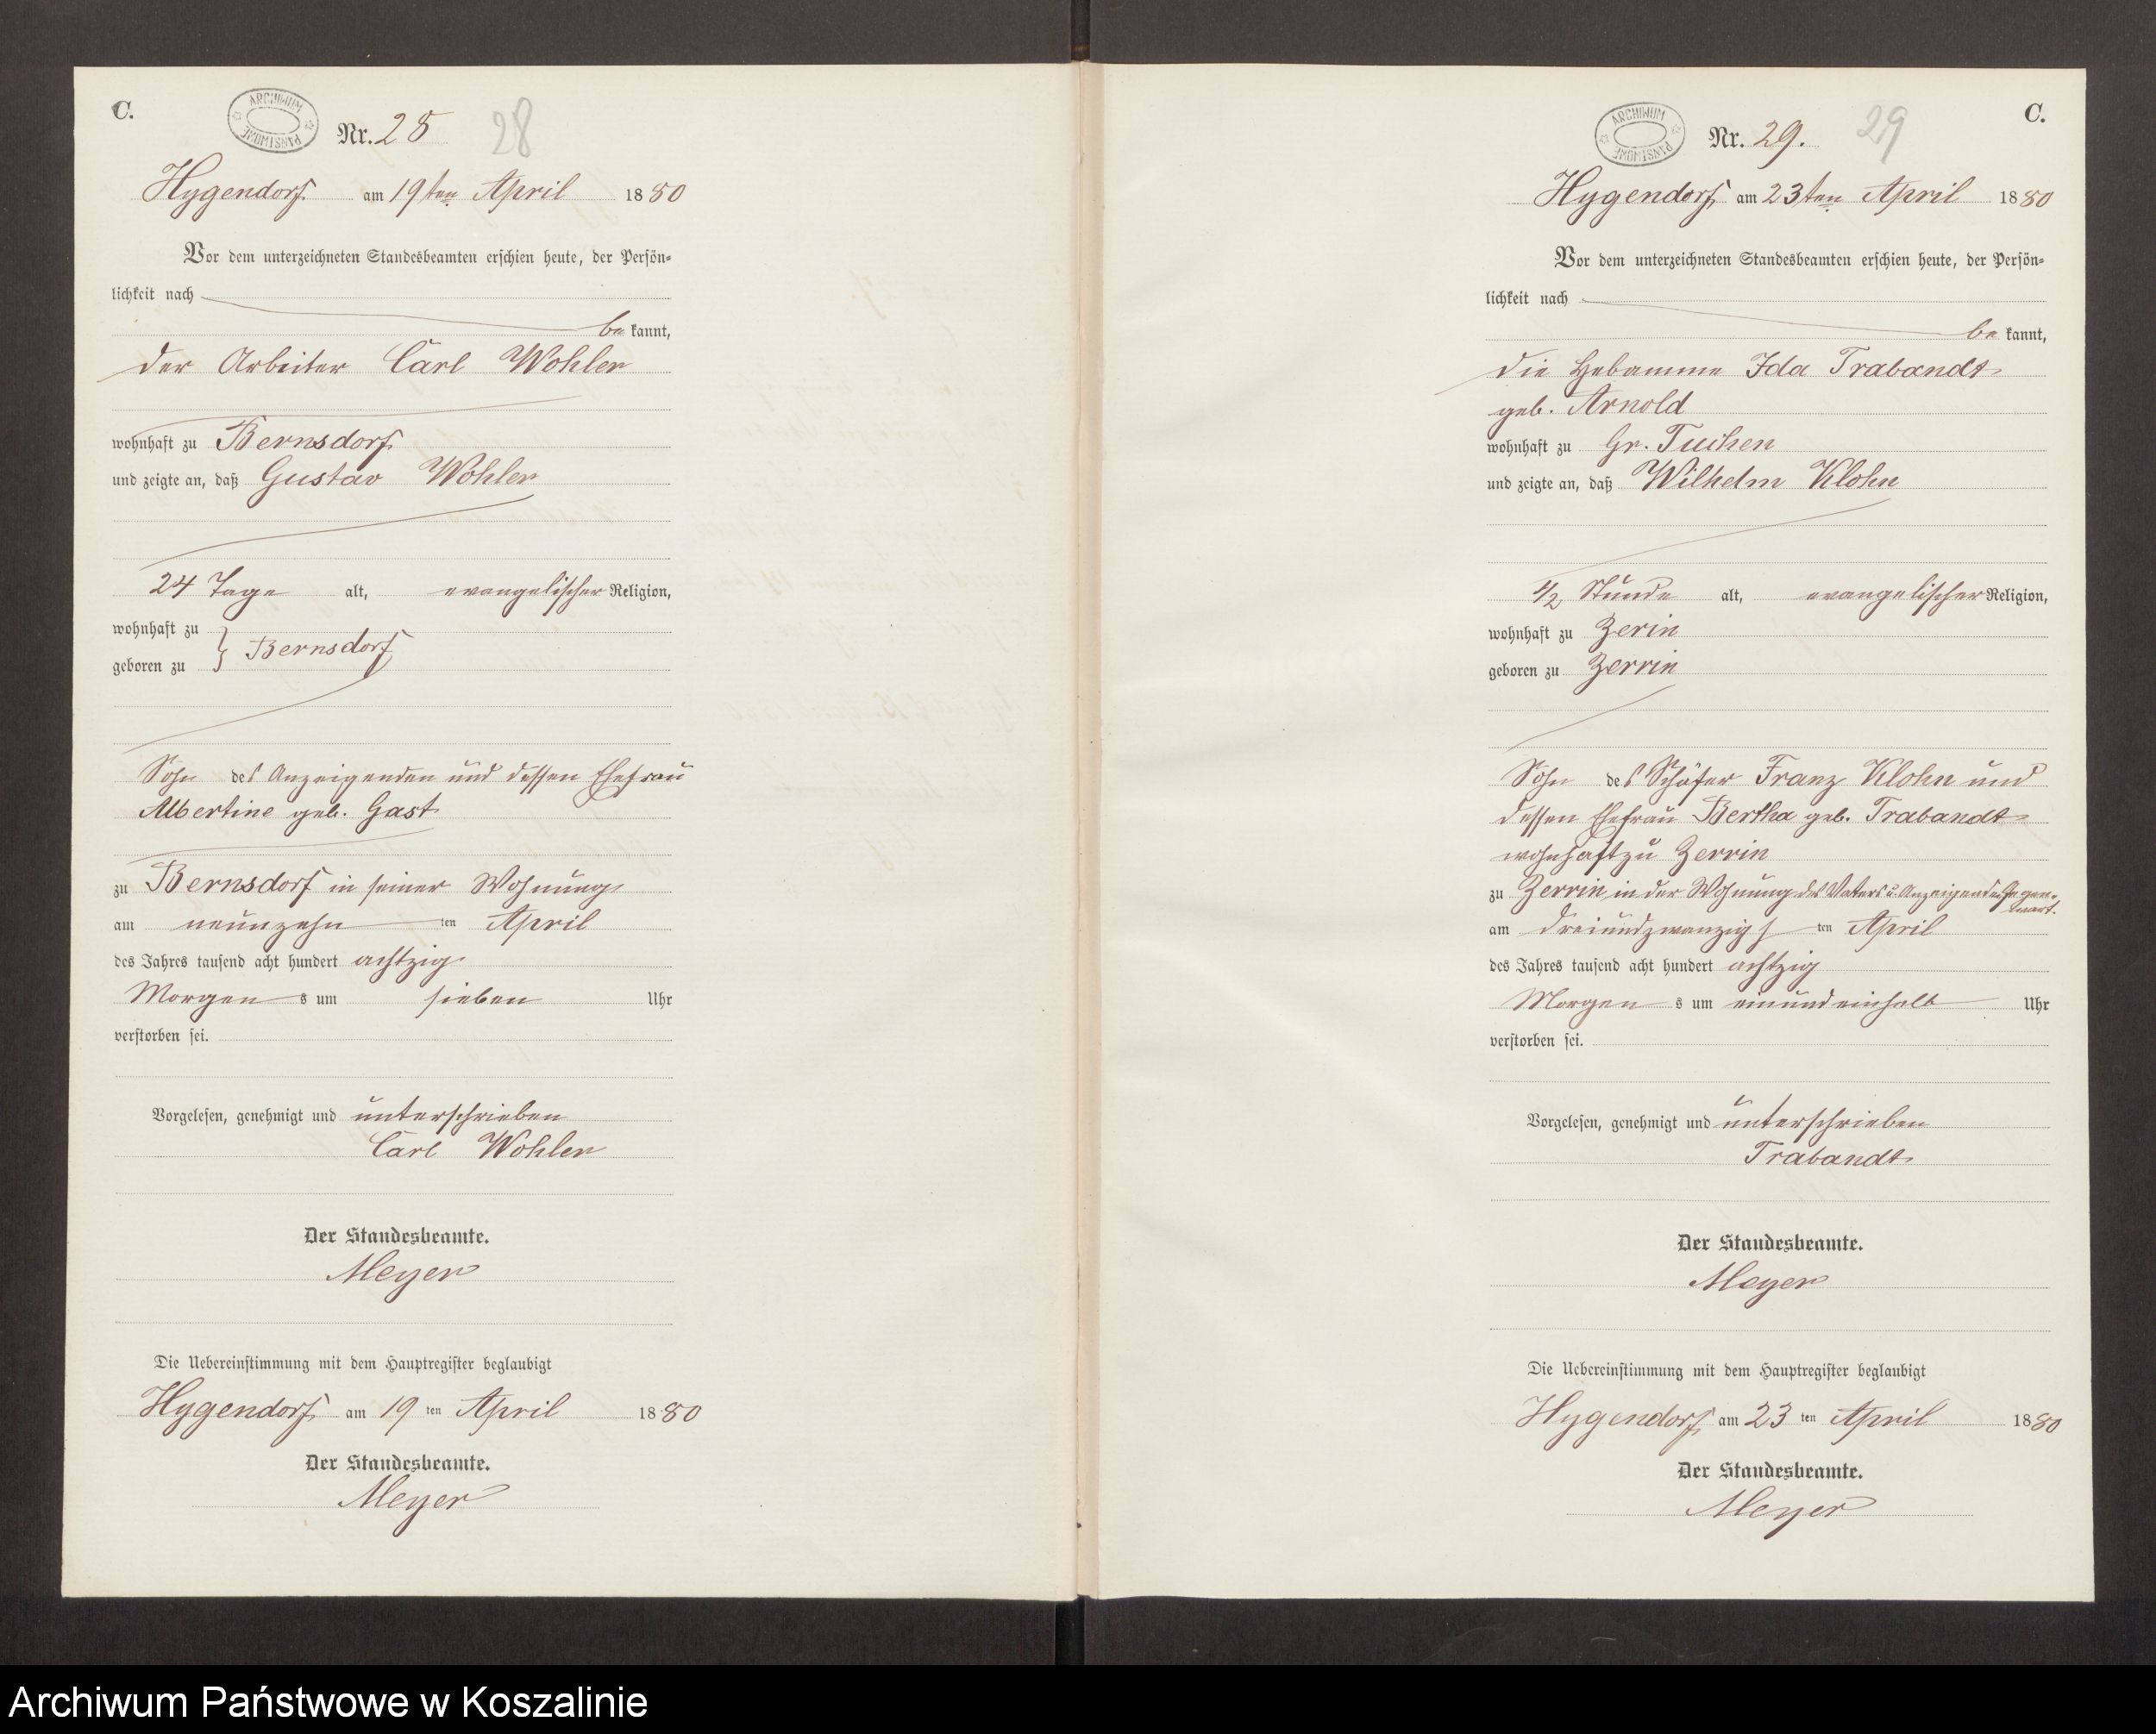 C.
ARCHIWUM PAŃSTWOWE
Nr. 28 28
Hygendorf am 19ten April 1880
Vor dem unterzeichneten Standesbeamten erschien heute, der Persön-
lichkeit nach
be kannt,
der Arbeiter Carl Wohler
wohnhaft zu Bernsdorf
und zeigte an, daß Gustav Wohler
24 Tage alt, evangelischer Religion,
wohnhaft zu
geboren zu } Bernsdorf
Sohn des Anzeigenden und dessen Ehefrau
Albertine geb. Gast
zu Bernsdorf in seiner Wohnung
am neunzehn ten April
des Jahres tausend acht hundert achtzig
Morgen s um sieben Uhr
verstorben sei.
Vorgelesen, genehmigt und unterschrieben
Carl Wohler
Der Standesbeamte.
Meyer
Die Uebereinstimmung mit dem Hauptregister beglaubigt
Hygendorf am 19 ten April 1880
Der Standesbeamte.
Meyer
C.
ARCHIWUM PAŃSTWOWE
Nr. 29. 29
Hygendorf am 23ten April 1880
Vor dem unterzeichneten Standesbeamten erschien heute, der Persön-
lichkeit nach
be kannt,
die Hebamme Ida Trabandt
geb. Arnold
wohnhaft zu Gr. Tuchen
und zeigte an, daß Wilhelm Klohn
1/2 Stunde alt, evangelischer Religion,
wohnhaft zu Zerin
geboren zu Zerrin
Sohn des Schäfer Franz Klohn und
dessen Ehefrau Bertha geb. Trabandt
wohnhaft zu Zerrin
zu Zerrin in der Wohnung des Vaters u. Anzeigende Gegen-
wart.
am dreiundzwanzigs ten April
des Jahres tausend acht hundert achtzig
Morgen s um einundeinhalb Uhr
verstorben sei.
Vorgelesen, genehmigt und unterschrieben
Trabandt
Der Standesbeamte.
Meyer
Die Uebereinstimmung mit dem Hauptregister beglaubigt
Hygendorf am 23 ten April 1880
Der Standesbeamte.
Meyer
Archiwum Państwowe w Koszalinie